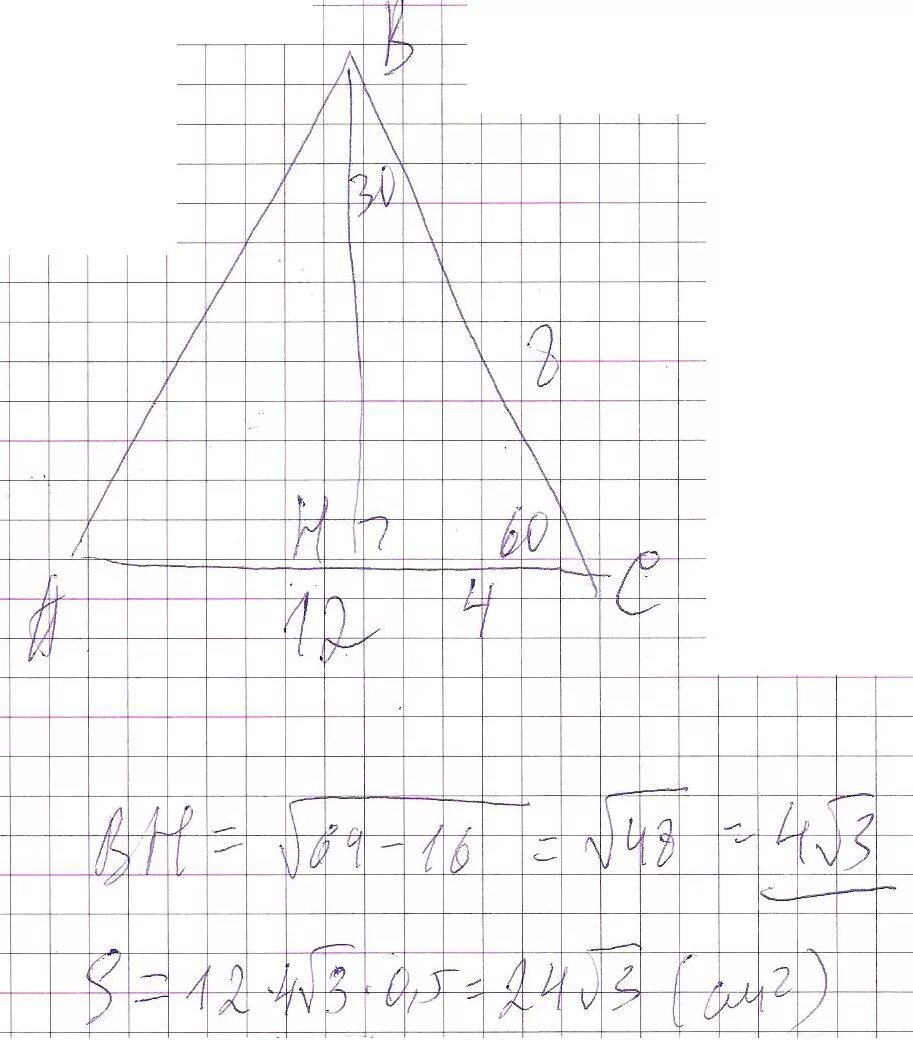 B
30
8
H 60
A 12 4 C
BH = √64 - 16 = √48 = 4√3
S = 12 · 4√3 · 0,5 = 24√3 (см²)